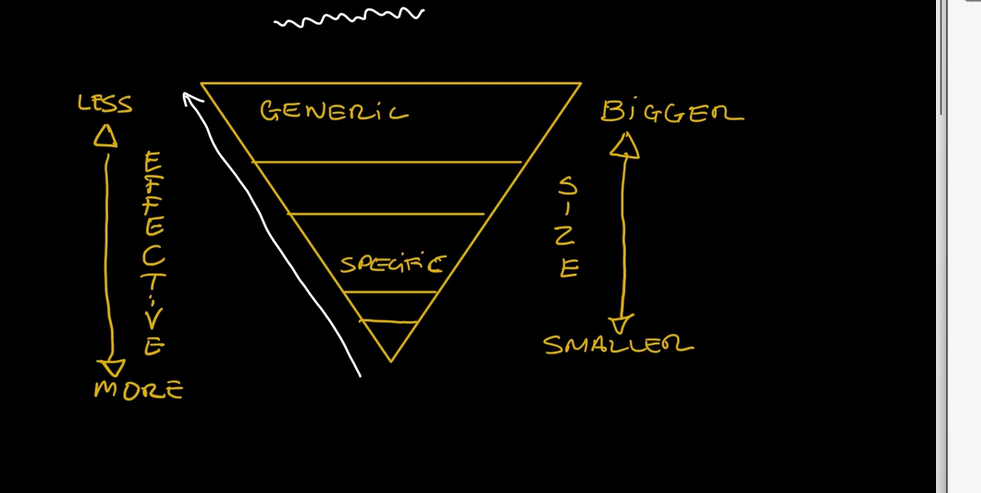 LESS
EFFECTiVE
MORE
GENERiC
SPECiFiC
BiGGER
SIZE
SMALLER